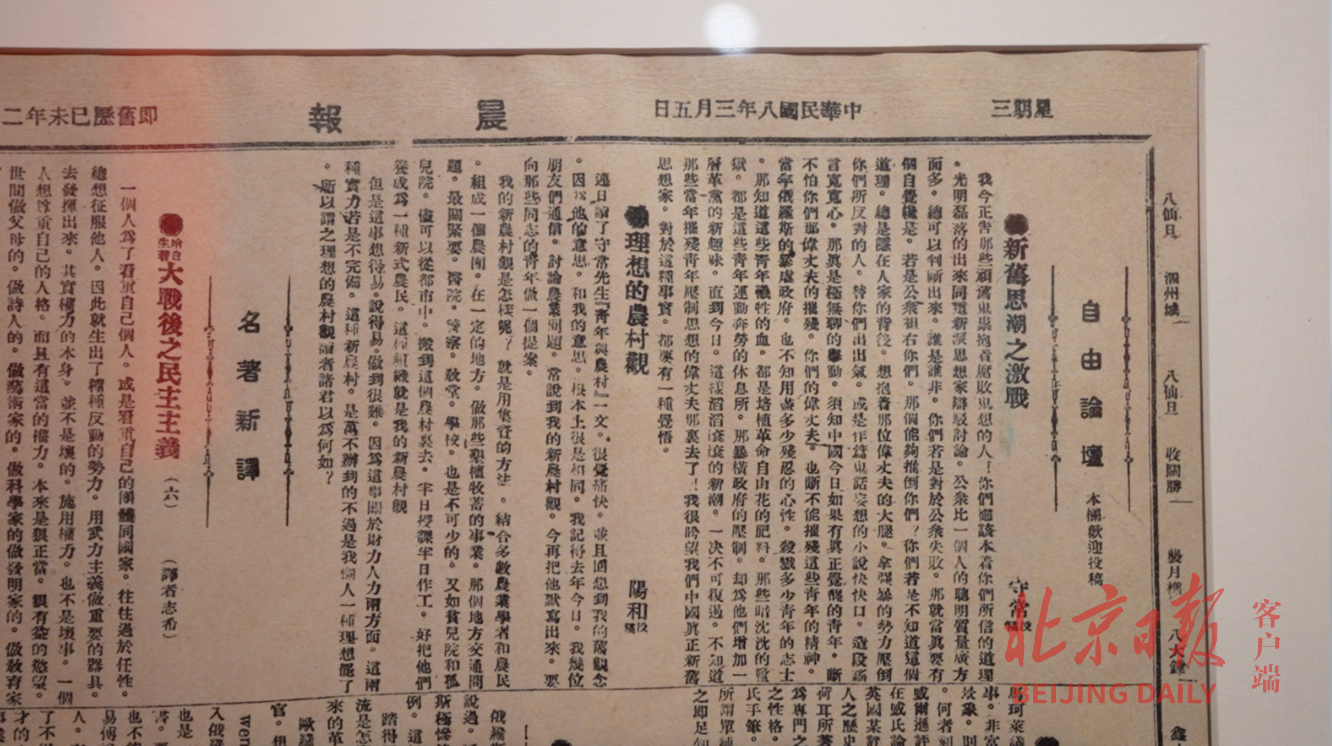 星期三
中華民國八年三月五日
晨報
即舊歷己未年二
八仙旦
泗州城
八仙旦
收關勝
八大錘
自由論壇
本欄歡迎投稿
●新舊思潮之激戰
守常投稿
我今正告那些頑舊鬼祟抱着腐敗思想的人！你們應該本着你們所信的道理
。光明磊落的出來同這新派思想家辯駁討論。公衆比一個人的聰明質量廣方
面多。總可以判斷出來。誰是誰非。你們若是對於公衆失敗。那就當真要有
個自覺纔是。若是公衆袒右你們。那個能夠推倒你們？你們若是不知道這個
道理。總是隱在人家的背後。想抱着那位偉丈夫的大腿。拿强暴的勢力壓倒
你們所反對的人。替你們出出氣。或是作篇鬼話妄想的小說快快口。造段謠
言寬寬心。那真是極無聊的舉動。須知中國今日如果有真正覺醒的青年。斷
不怕你們那偉丈夫的摧殘。你們的偉丈夫。也斷不能摧殘這些青年的精神。
當年俄羅斯的暴虐政府。也不知用盡多少殘忍的心性。殺戮多少青年的志士
。那知道這些青年犧牲的血。都是培植革命自由花的肥料。那些暗沈沈的監
獄。都是這些青年運動奔勞的休息所。那暴橫政府的壓制。却爲他們增加一
層革黨的新趣味。直到今日。這樣滔滔滾滾的新潮。一决不可復遏。不知道
那些當年摧殘青年壓制思想的偉丈夫那裏去了！我很盼望我們中國真正新舊
思想家。對於這種事實。都要有一種覺悟。
●理想的農村觀
陽和投稿
連日讀了守常先生『青年與農村』一文。很覺痛快。並且回想到我的舊觀念
。因爲他的意思。和我的意思。根本上很是相同。我記得去年今日。我幾位
朋友們通信。討論農業問題。常說到我的新農村觀。今再把他默寫出來。要
向那些同志的青年做一個提案。
我的新農村觀是怎樣呢？就是用集資的方法。結合多數農業學者和農民
。組成一個農團。在一定的地方。做那些墾植牧畜的事業。那個地方交通問
題。最關緊要。醫院。警察。教堂。學校。也是不可少的。又如貧兒院和孤
兒院。儘可以從都市中。搬到這個農村裏去。半日授課半日作工。好把他們
養成爲一種新式農民。這種組織就是我的新農村觀
但是這事想得易。說得易。做到很難。因爲這事關於財力人力兩方面。這兩
種實力若是不完備。這種新農村。是萬不辦到的不過是我個人一種理想罷了
。所以謂之理想的農村觀讀者諸君以爲何如？
名著新譯
●哈白生著大戰後之民主主義
（六）
（譯者志希）
一個人爲了看重自己個人。或是看重自己的團體同國家。往往過於任性。
總想征服他人。因此就生出了種種反動的勢力。用武力主義做重要的器具。
去發揮出來。其實權力的本身。並不是壞的。施用權力。也不是壞事。一個
人想尊重自己的人格。而且有適當的權力。本來是狠正當。狠有益的慾望。
世間做父母的。做詩人的。做藝術家的。做科學家的做發明家的。做教育家
北京日報
BEIJING DAILY
客户端